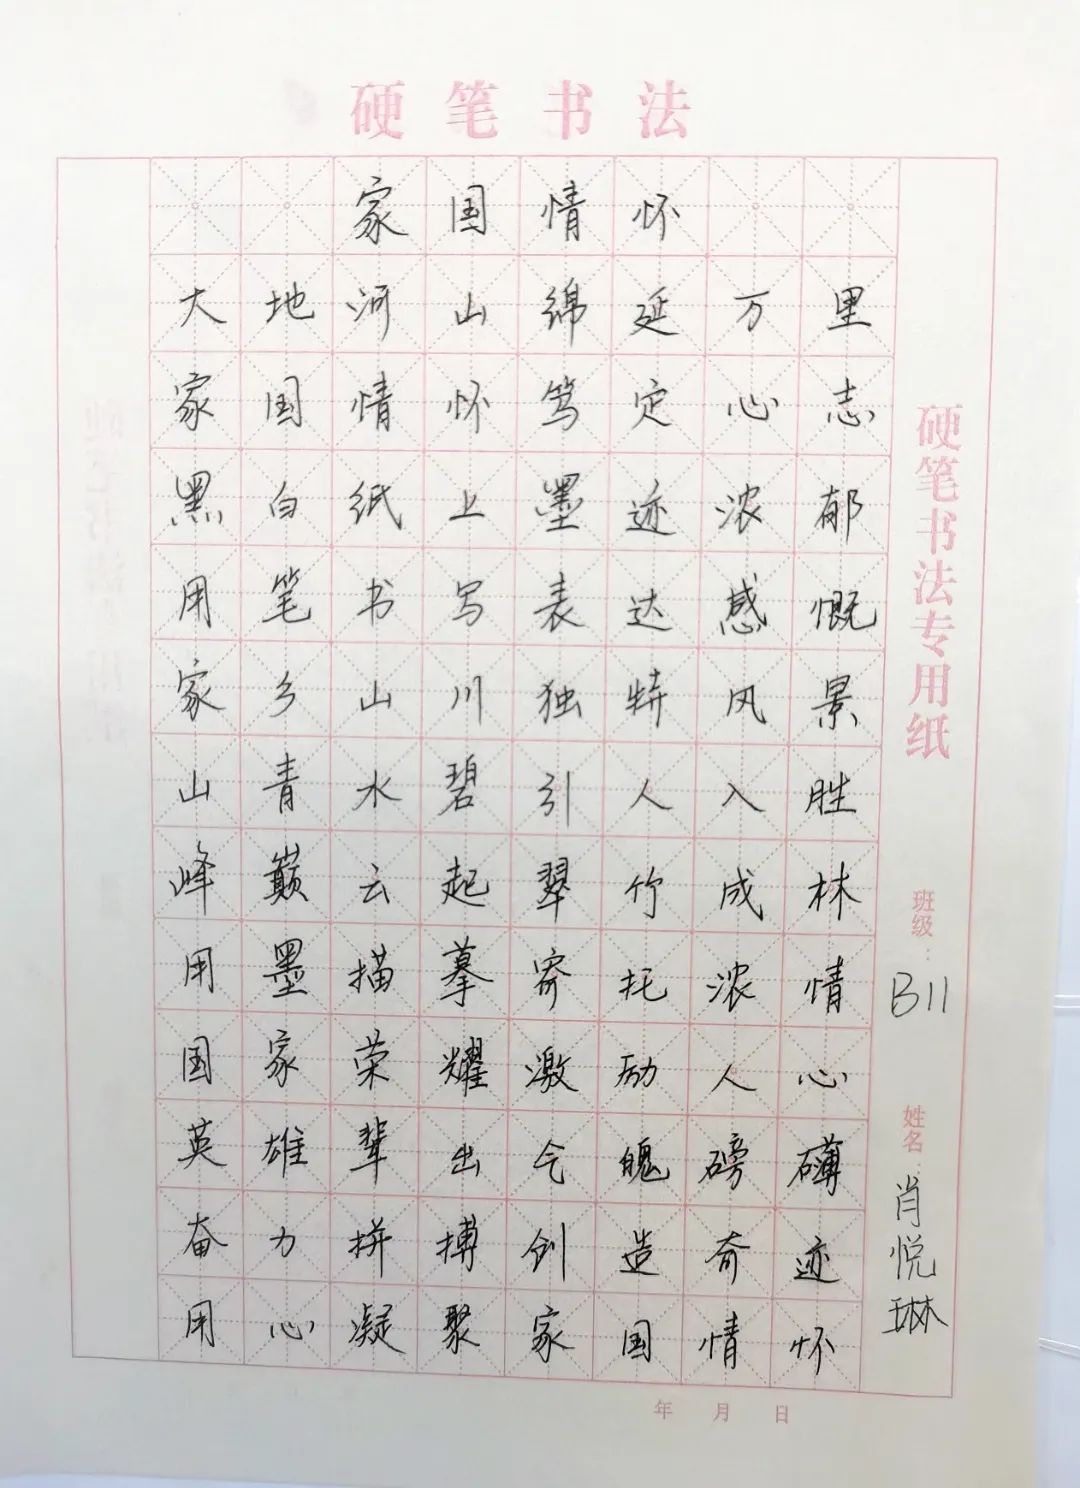 硬笔书法
家国情怀
大地河山绵延万里
家国情怀笃定心志
黑白纸上墨迹浓郁
用笔书写表达感慨
家乡山川独特风景
山青水碧引人入胜
峰巅云起翠竹成林
用墨描摹寄托浓情
国家荣耀激励人心
英雄辈出气魄磅礴
奋力拼搏创造奇迹
用心凝聚家国情怀
硬笔书法专用纸
班级：B11
姓名：肖悦琳
年 月 日